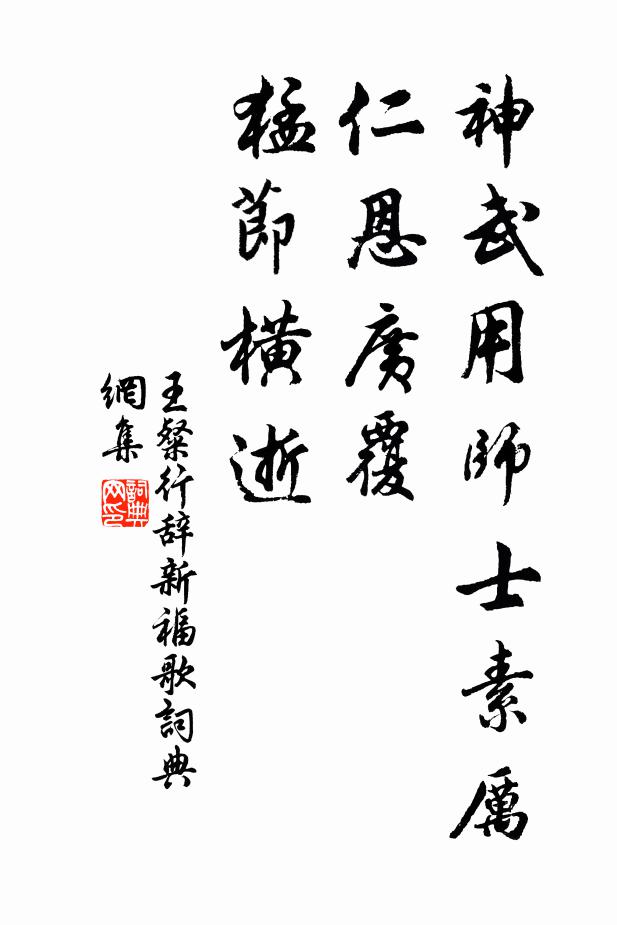 神武用師士素厲
仁恩廣覆
猛節橫逝
王粲行辞新福歌詞典
網集
詞典
网印